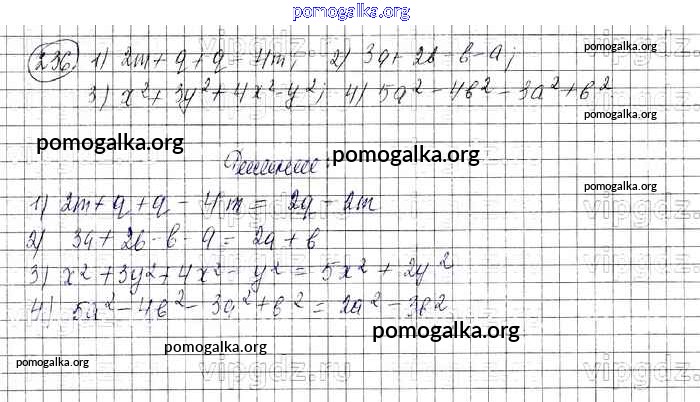 pomogalka.org
236. 1) 2m + q + q - 4m; 2) 3a + 2b - b - a;
pomogalka.org
3) x² + 3y² + 4x² - y²; 4) 5a² - 4b² - 3a² + b²
pomogalka.org
pomogalka.org
Решение:
pomogalka.org
1) 2m + q + q - 4m = 2q - 2m
vipgdz.ru
2) 3a + 2b - b - a = 2a + b
3) x² + 3y² + 4x² - y² = 5x² + 2y²
4) 5a² - 4b² - 3a² + b² = 2a² - 3b²
pomogalka.org
pomogalka.org
pomogalka.org
vipgdz.ru
vipgdz.ru